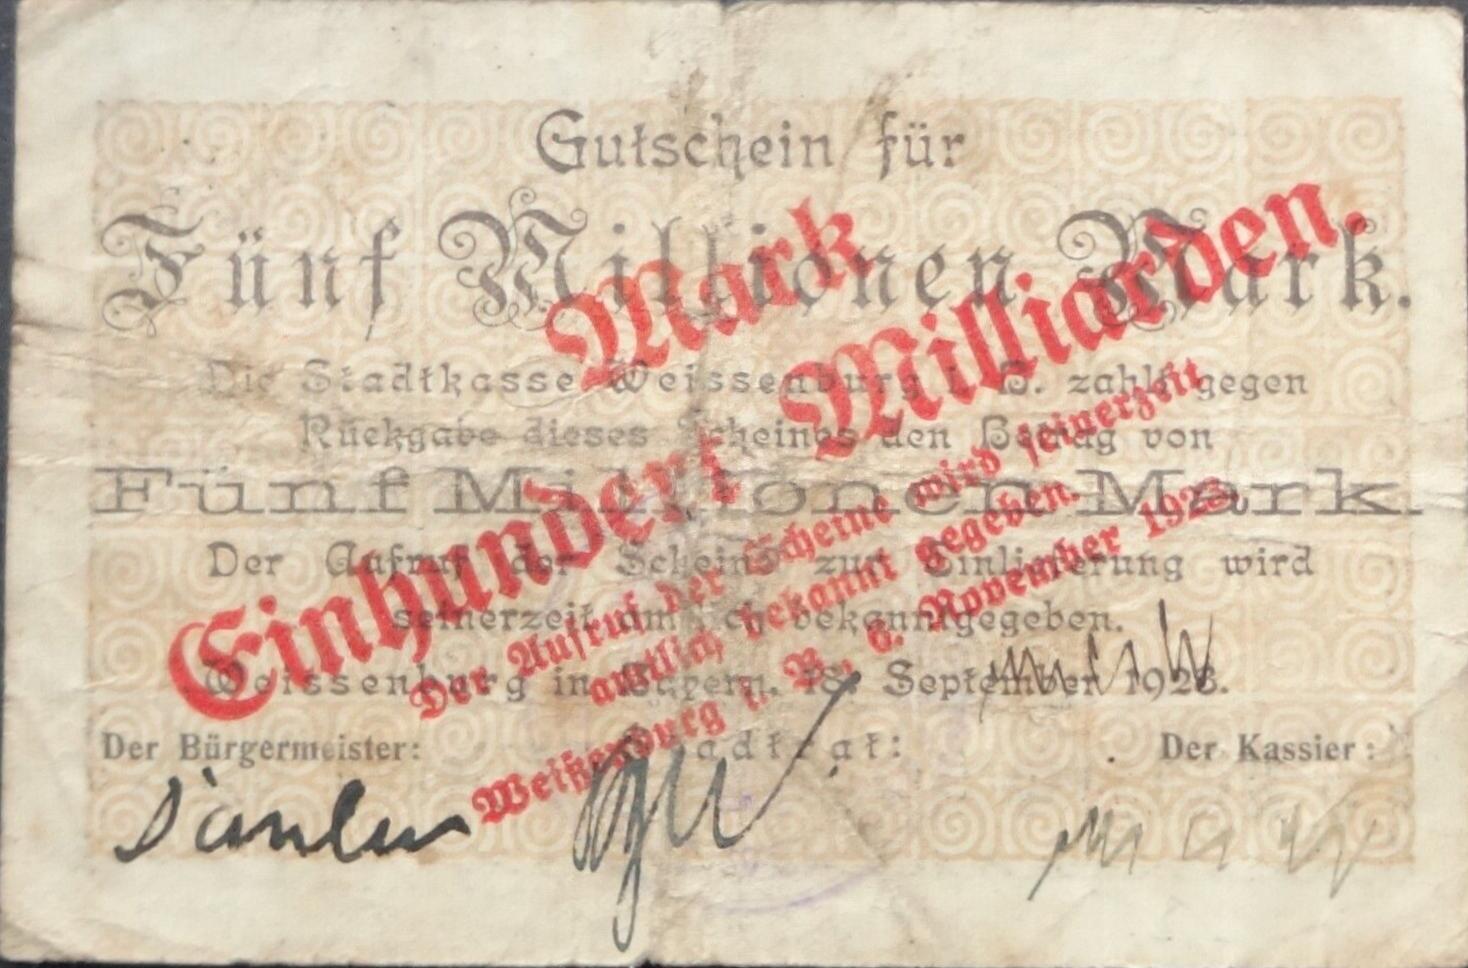 Gutschein für
Fünf Millionen Mark.
Die Stadtkasse Weissenburg i. B. zahlt gegen
Rückgabe dieses Scheines den Betrag von
Fünf Millionen Mark
Der Aufruf der Scheine zur Einlieferung wird
seinerzeit amtlich bekanntgegeben.
Weissenburg in Bayern, 18. September 1923.
Der Bürgermeister: Stadtrat: Der Kassier:
Mark
Einhundert Milliarden.
Der Aufruf der Scheine wird seinerzeit
amtlich bekannt gegeben.
Weißenburg i. B., 6. November 1923.